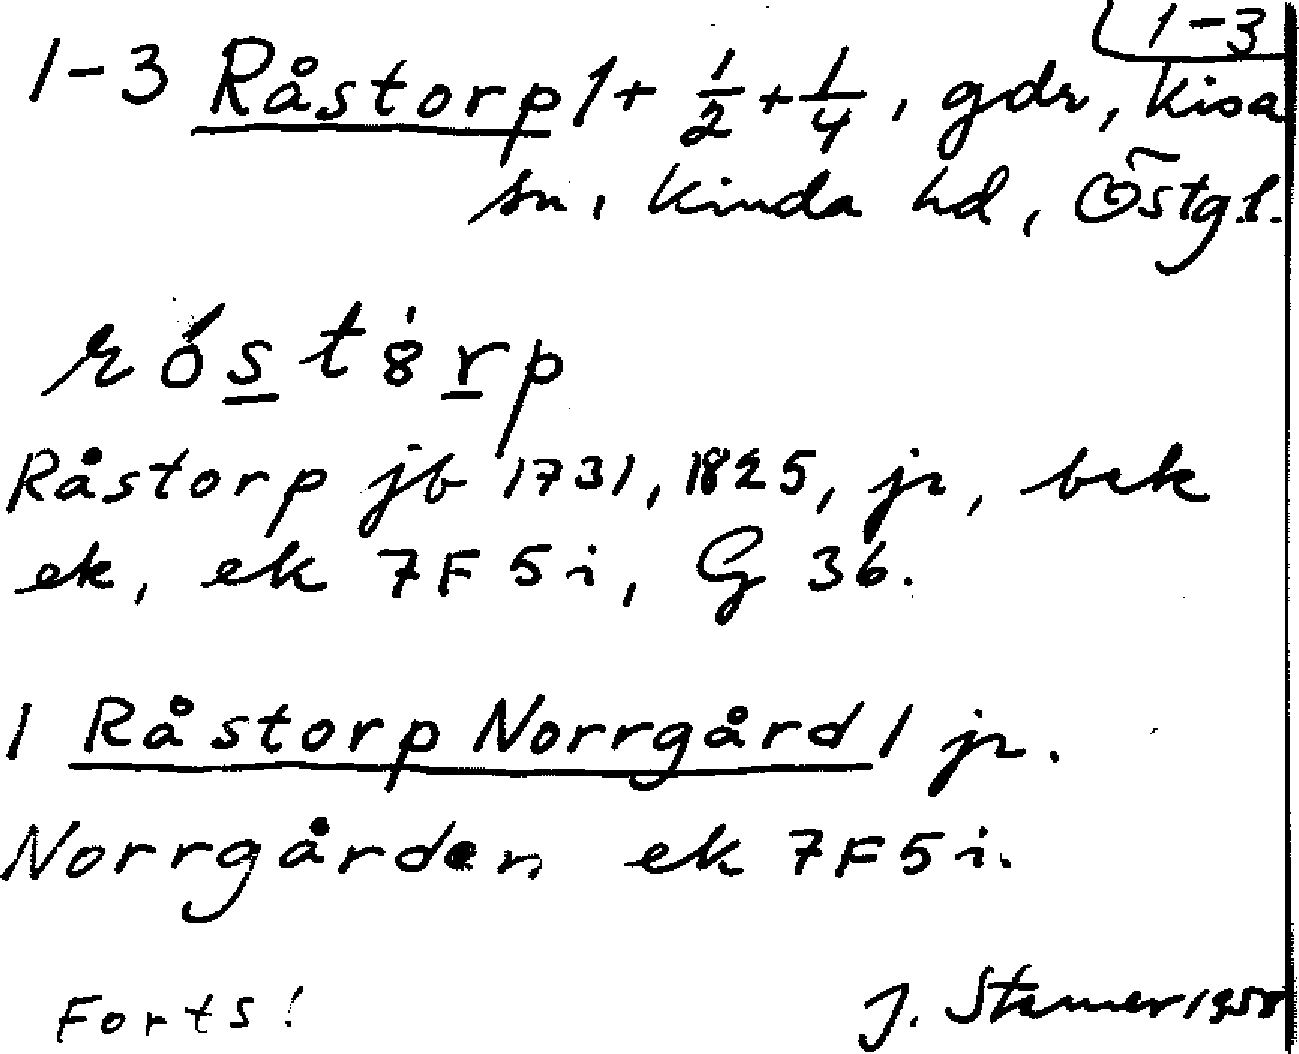 1-3
1-3 Råstorp 1 + 1/2 + 1/4, gdr, Kisa
sn, Kinda hd, Östgl.
róstòrp
Råstorp jb 1731, 1825, jr, bek
ek, ek 7F5i, G 36.
1 Råstorp Norrgård 1 jr.
Norrgården ek 7F5i.
Forts! J. Stamer 1958